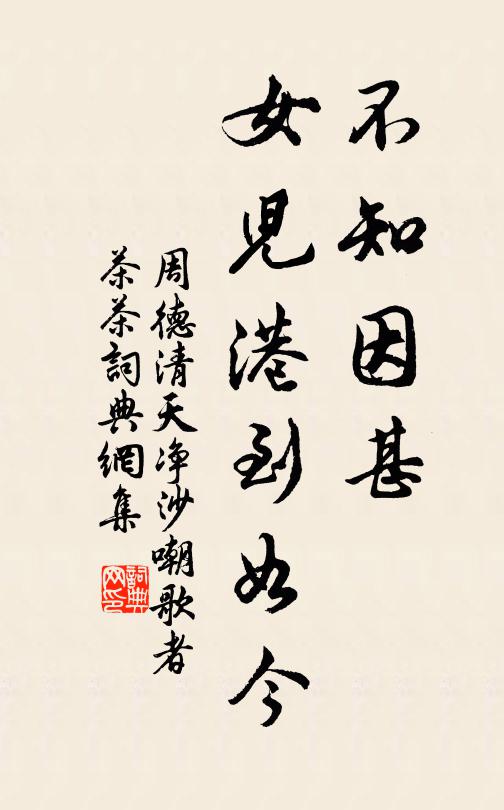 不知因甚
女児港到如今
周德清天净沙嘲歌者
茶茶詞典網集
詞典
网印